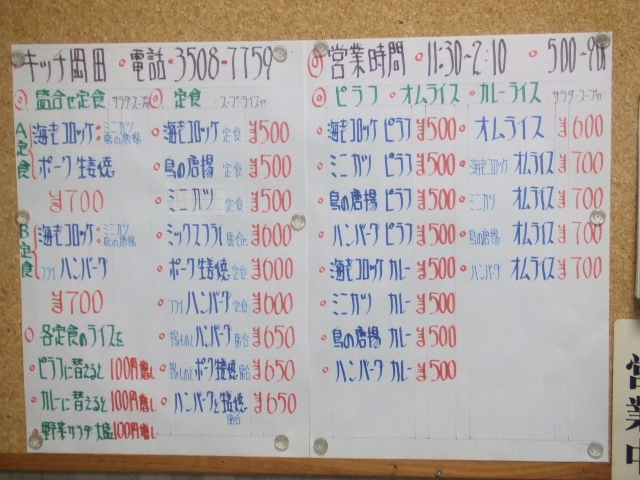 キッチ岡田 ・電話・3508-7759
◎ 詰合せ定食 サラダ・スープ
A定食
海老コロッケ・ミニカツ 鳥の唐揚
ポーク生姜焼
¥700
B定食
海老コロッケ・ミニカツ 鳥の唐揚
フライ ハンバーグ
¥700
○ 各定食のライスを
・ピラフに替えると 100円増し
・カレーに替えると 100円増し
・野菜サラダ大盛 100円増し
◎ 定食 スープライス付
・海老コロッケ 定食 ¥500
・鳥の唐揚 定食 ¥500
・ミニカツ 定食 ¥500
・ミックスフライ 盛合せ ¥600
・ポーク生姜焼 定食 ¥600
・フライ ハンバーグ 定食 ¥600
ハンバーグ 盛合 ¥650
ポーク生姜焼 盛合 ¥650
・ハンバーグと生姜焼 盛合 ¥650
◎ 営業時間 ・11:30~2:10 ・500~
◎ ピラフ ・オムライス ・カレーライス サラダ・スープ付
・海老コロッケ ピラフ ¥500
・ミニカツ ピラフ ¥500
・鳥の唐揚 ピラフ ¥500
・ハンバーグ ピラフ ¥500
・海老コロッケ カレー ¥500
・ミニカツ カレー ¥500
・鳥の唐揚 カレー ¥500
・ハンバーグ カレー ¥500
・オムライス ¥600
・海老コロッケ オムライス ¥700
・ミニカツ オムライス ¥700
・鳥の唐揚 オムライス ¥700
・ハンバーグ オムライス ¥700
営業中